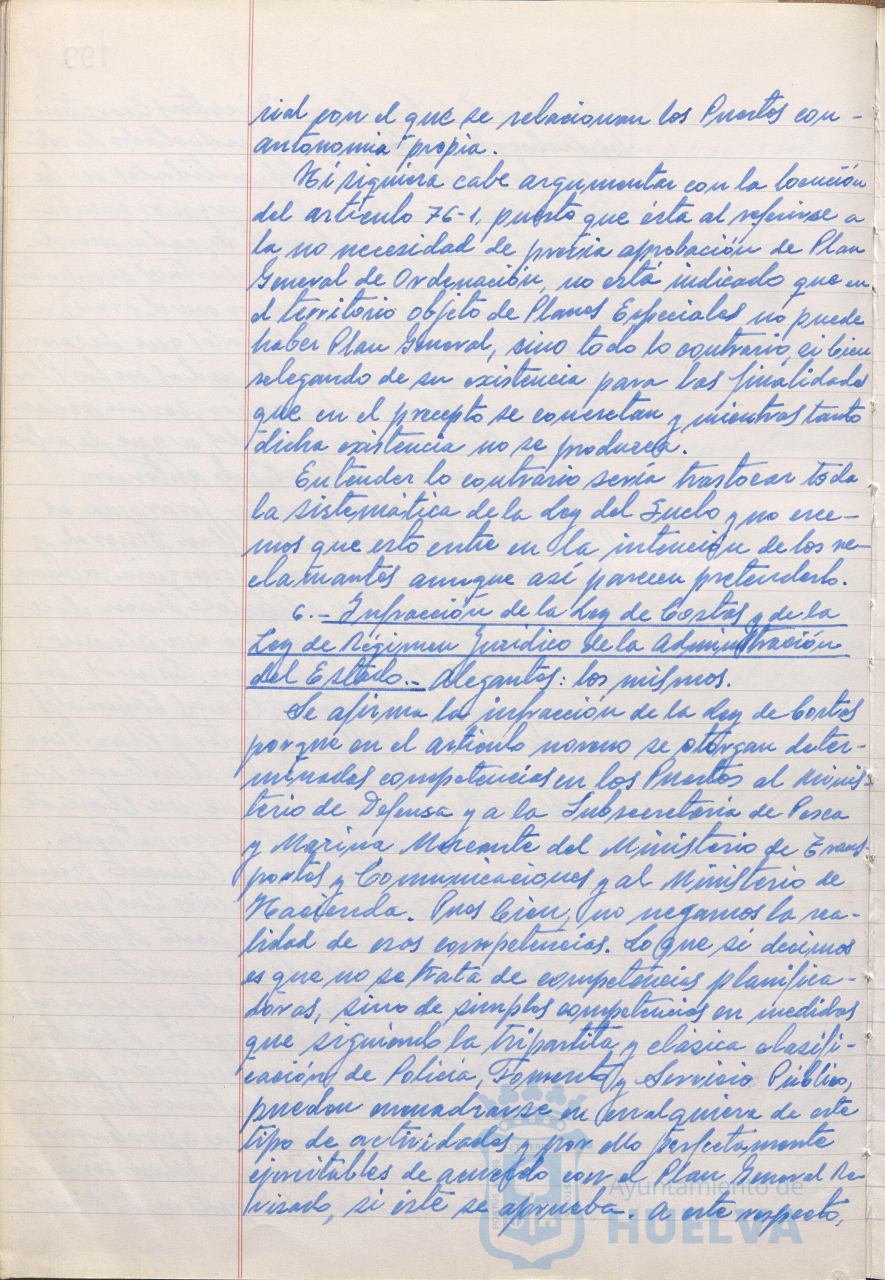 rial con el que se relacionan los Puertos con
autonomia propia.
Ni siquiera cabe argumentar con la locución
del artículo 76-1, puesto que ésta al referirse a
la no necesidad de previa aprobación de Plan
General de Ordenación, no está indicado que en
el territorio objeto de Planes Especiales no puede
haber Plan General, sino todo lo contrario, si bien
relegando de su existencia para las finalidades
que en el precepto se concretan y mientras tanto
dicha existencia no se produzca.
Entender lo contrario sería trastocar toda
la sistemática de la Ley del Suelo y no cree-
mos que esto entre en la intención de los re-
clamantes aunque así parecen pretenderlo.
6.- Infracción de la Ley de Costas y de la
Ley de Régimen Jurídico de la Administración
del Estado.- Alegantes: los mismos.
Se afirma la infracción de la Ley de Costas
porque en el artículo noveno se otorgan deter-
minadas competencias en los Puertos al Minis-
terio de Defensa y a la Subsecretaría de Pesca
y Marina Mercante del Ministerio de Trans-
portes y Comunicaciones y al Ministerio de
Hacienda. Pues bien, no negamos la rea-
lidad de esas competencias. Lo que si decimos
es que no se trata de competencias planifica-
doras, sino de simples competencias en medidas
que siguiendo la tripartita y clásica clasifi-
cación de Policía, Fomento y Servicio Público,
pueden encuadrarse en cualquiera de este
tipo de actividades y por ello perfectamente
ejercitables de acuerdo con el Plan General Re-
visado, si éste se aprueba. A este respecto,
Ayuntamiento de
HUELVA